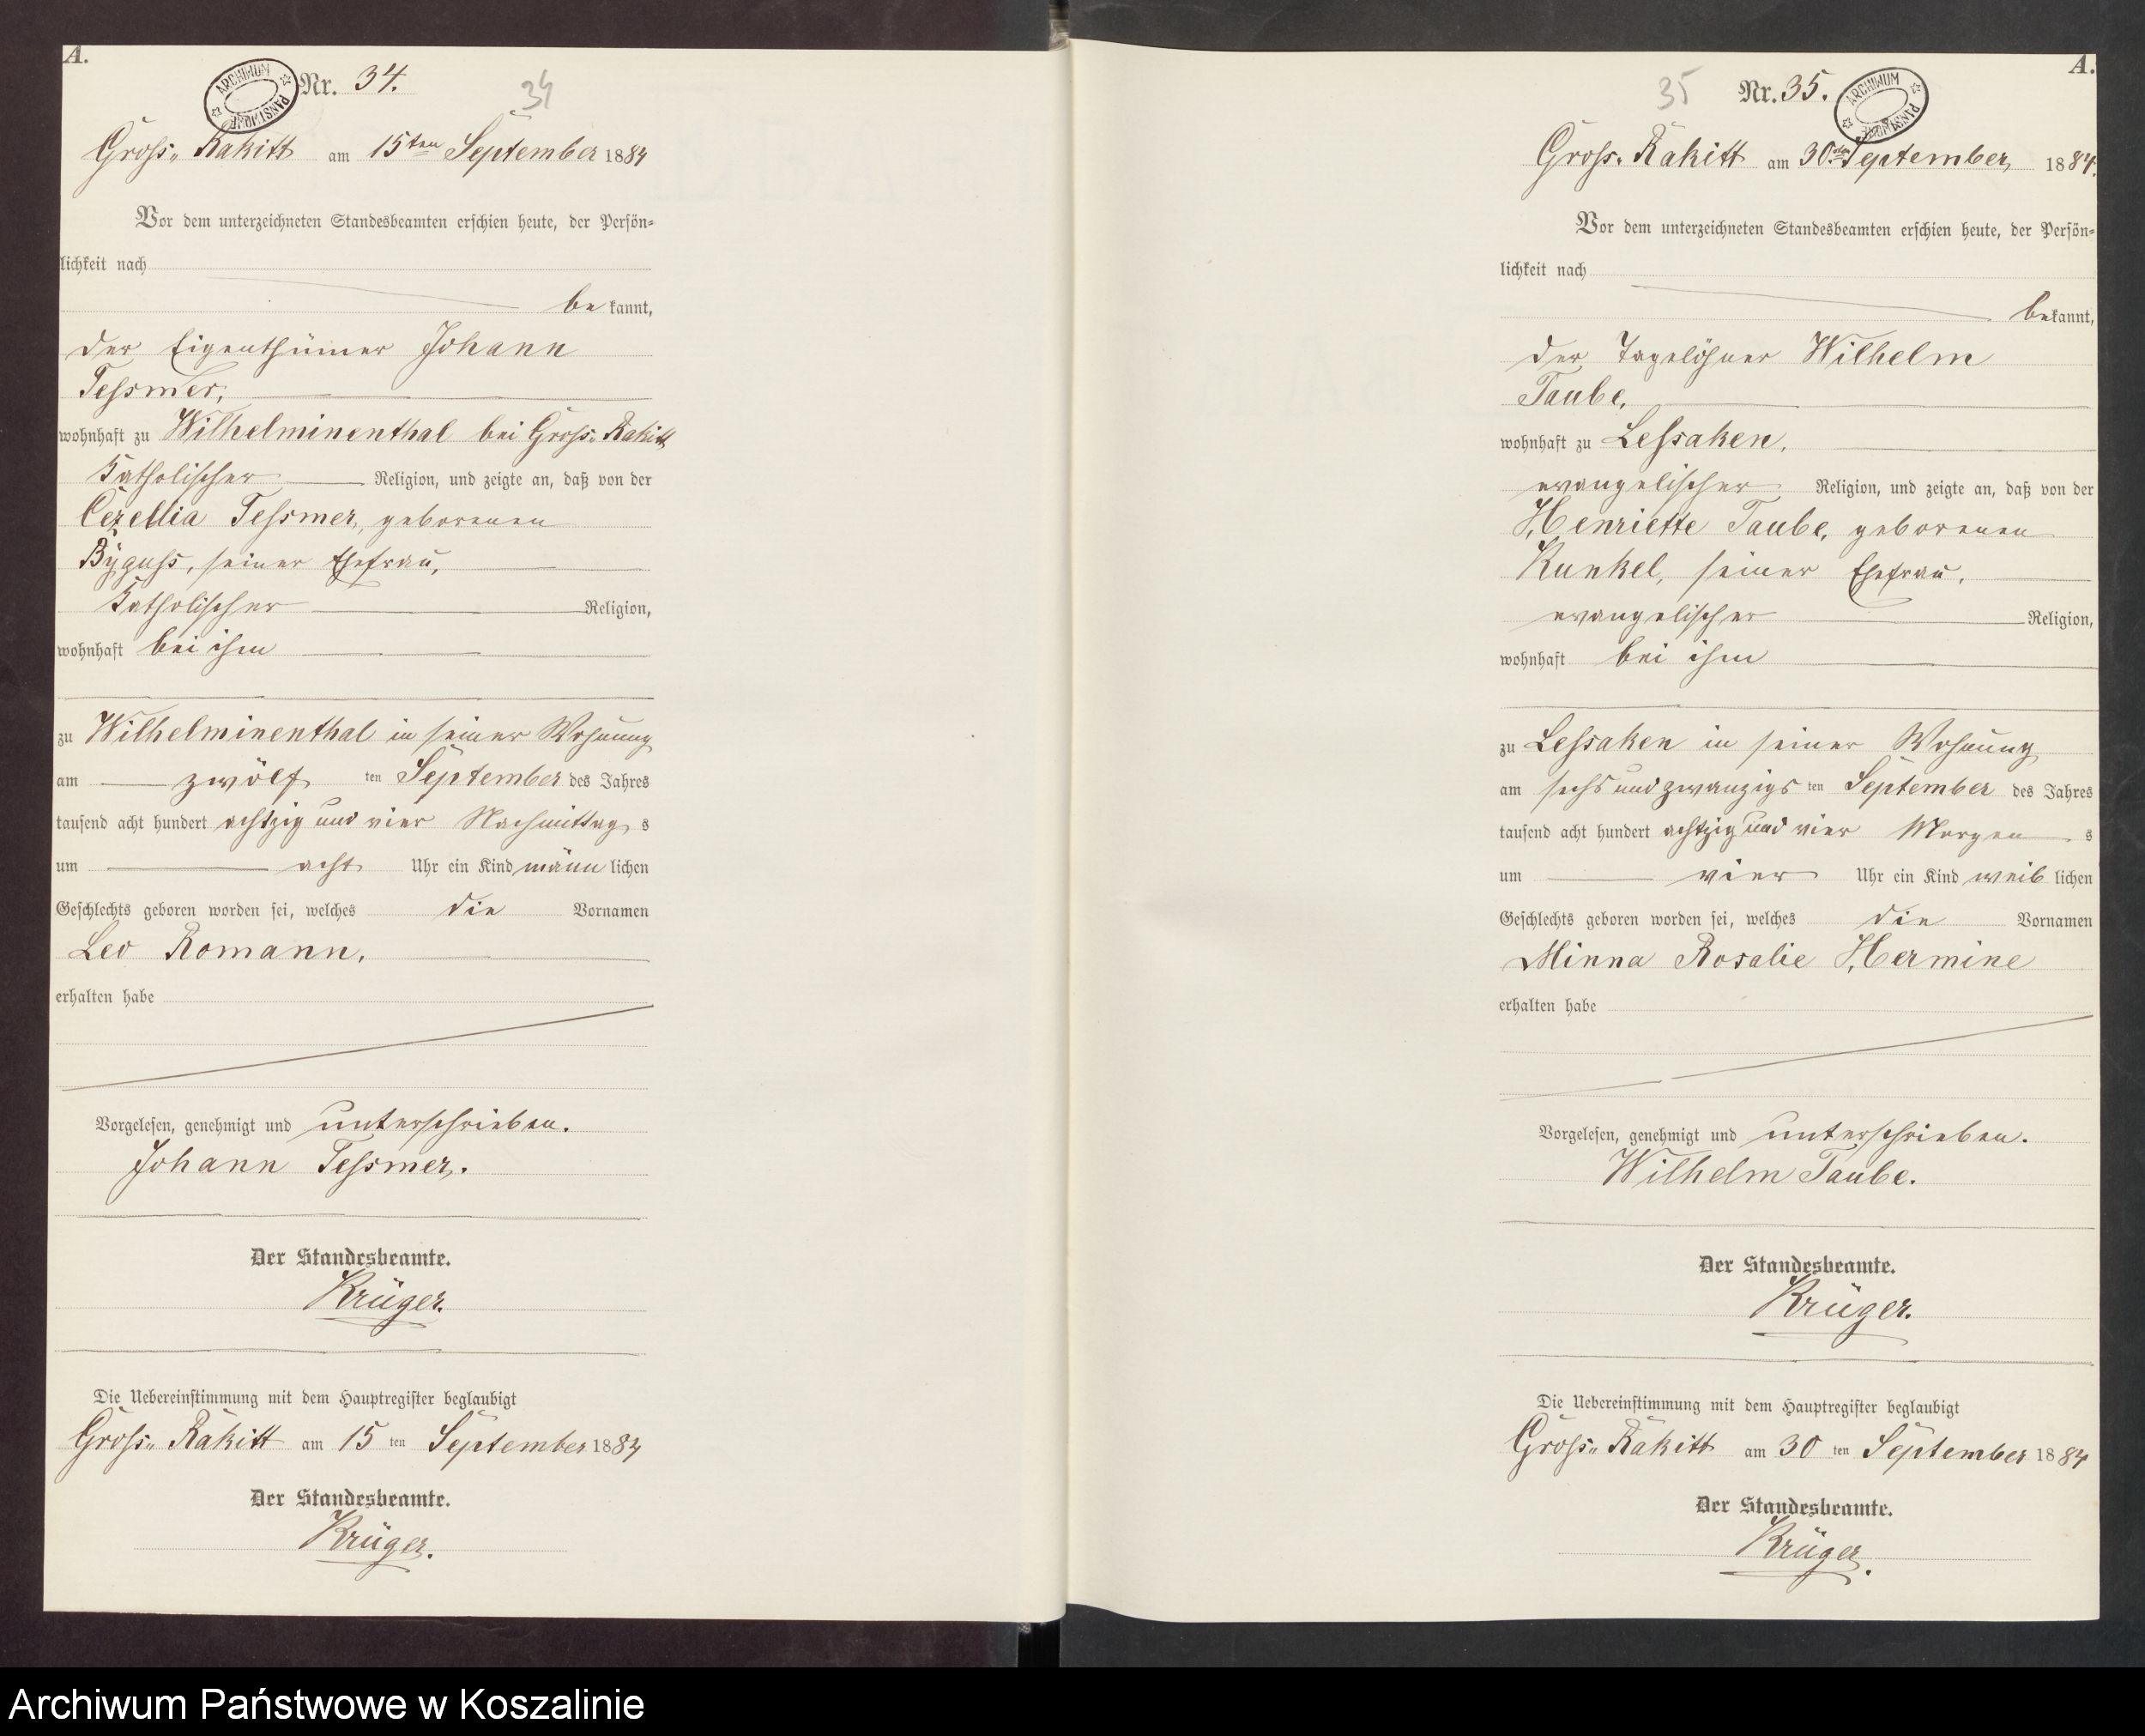 A.
ARCHIWUM PAŃSTWOWE
Nr. 34.
34
Gross-Rakitt am 15ten September 1884
Vor dem unterzeichneten Standesbeamten erschien heute, der Persön-
lichkeit nach
bekannt,
der Eigenthümer Johann
Tessmer,
wohnhaft zu Wilhelminenthal bei Gross-Rakitt
katholischer Religion, und zeigte an, daß von der
Cezellia Tessmer, geborenen
Byguss, seiner Ehefrau,
katholischer Religion,
wohnhaft bei ihm
zu Wilhelminenthal in seiner Wohnung
am zwölf ten September des Jahres
tausend acht hundert achtzig und vier Nachmittag s
um acht Uhr ein Kind männ lichen
Geschlechts geboren worden sei, welches die Vornamen
Leo Romann,
erhalten habe
Vorgelesen, genehmigt und unterschrieben.
Johann Tessmer.
Der Standesbeamte.
Krüger.
Die Uebereinstimmung mit dem Hauptregister beglaubigt
Gross-Rakitt am 15 ten September 1884
Der Standesbeamte.
Krüger.
A.
35
Nr. 35.
ARCHIWUM PAŃSTWOWE
Gross-Rakitt am 30sten September 1884.
Vor dem unterzeichneten Standesbeamten erschien heute, der Persön-
lichkeit nach
bekannt,
der Tagelöhner Wilhelm
Taube,
wohnhaft zu Lessaken,
evangelischer Religion, und zeigte an, daß von der
Henriette Taube, geborenen
Kunkel, seiner Ehefrau,
evangelischer Religion,
wohnhaft bei ihm
zu Lessaken in seiner Wohnung
am sechs und zwanzigs ten September des Jahres
tausend acht hundert achtzig und vier Morgen s
um vier Uhr ein Kind weib lichen
Geschlechts geboren worden sei, welches die Vornamen
Minna Rosalie Hermine
erhalten habe
Vorgelesen, genehmigt und unterschrieben.
Wilhelm Taube.
Der Standesbeamte.
Krüger.
Die Uebereinstimmung mit dem Hauptregister beglaubigt
Gross-Rakitt am 30 ten September 1884
Der Standesbeamte.
Krüger.
Archiwum Państwowe w Koszalinie